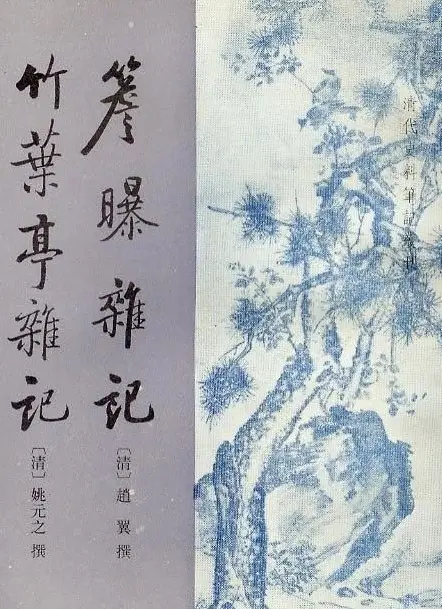 清代史料筆記叢刊
簷曝雜記
〔清〕趙翼撰
竹葉亭雜記
〔清〕姚元之撰